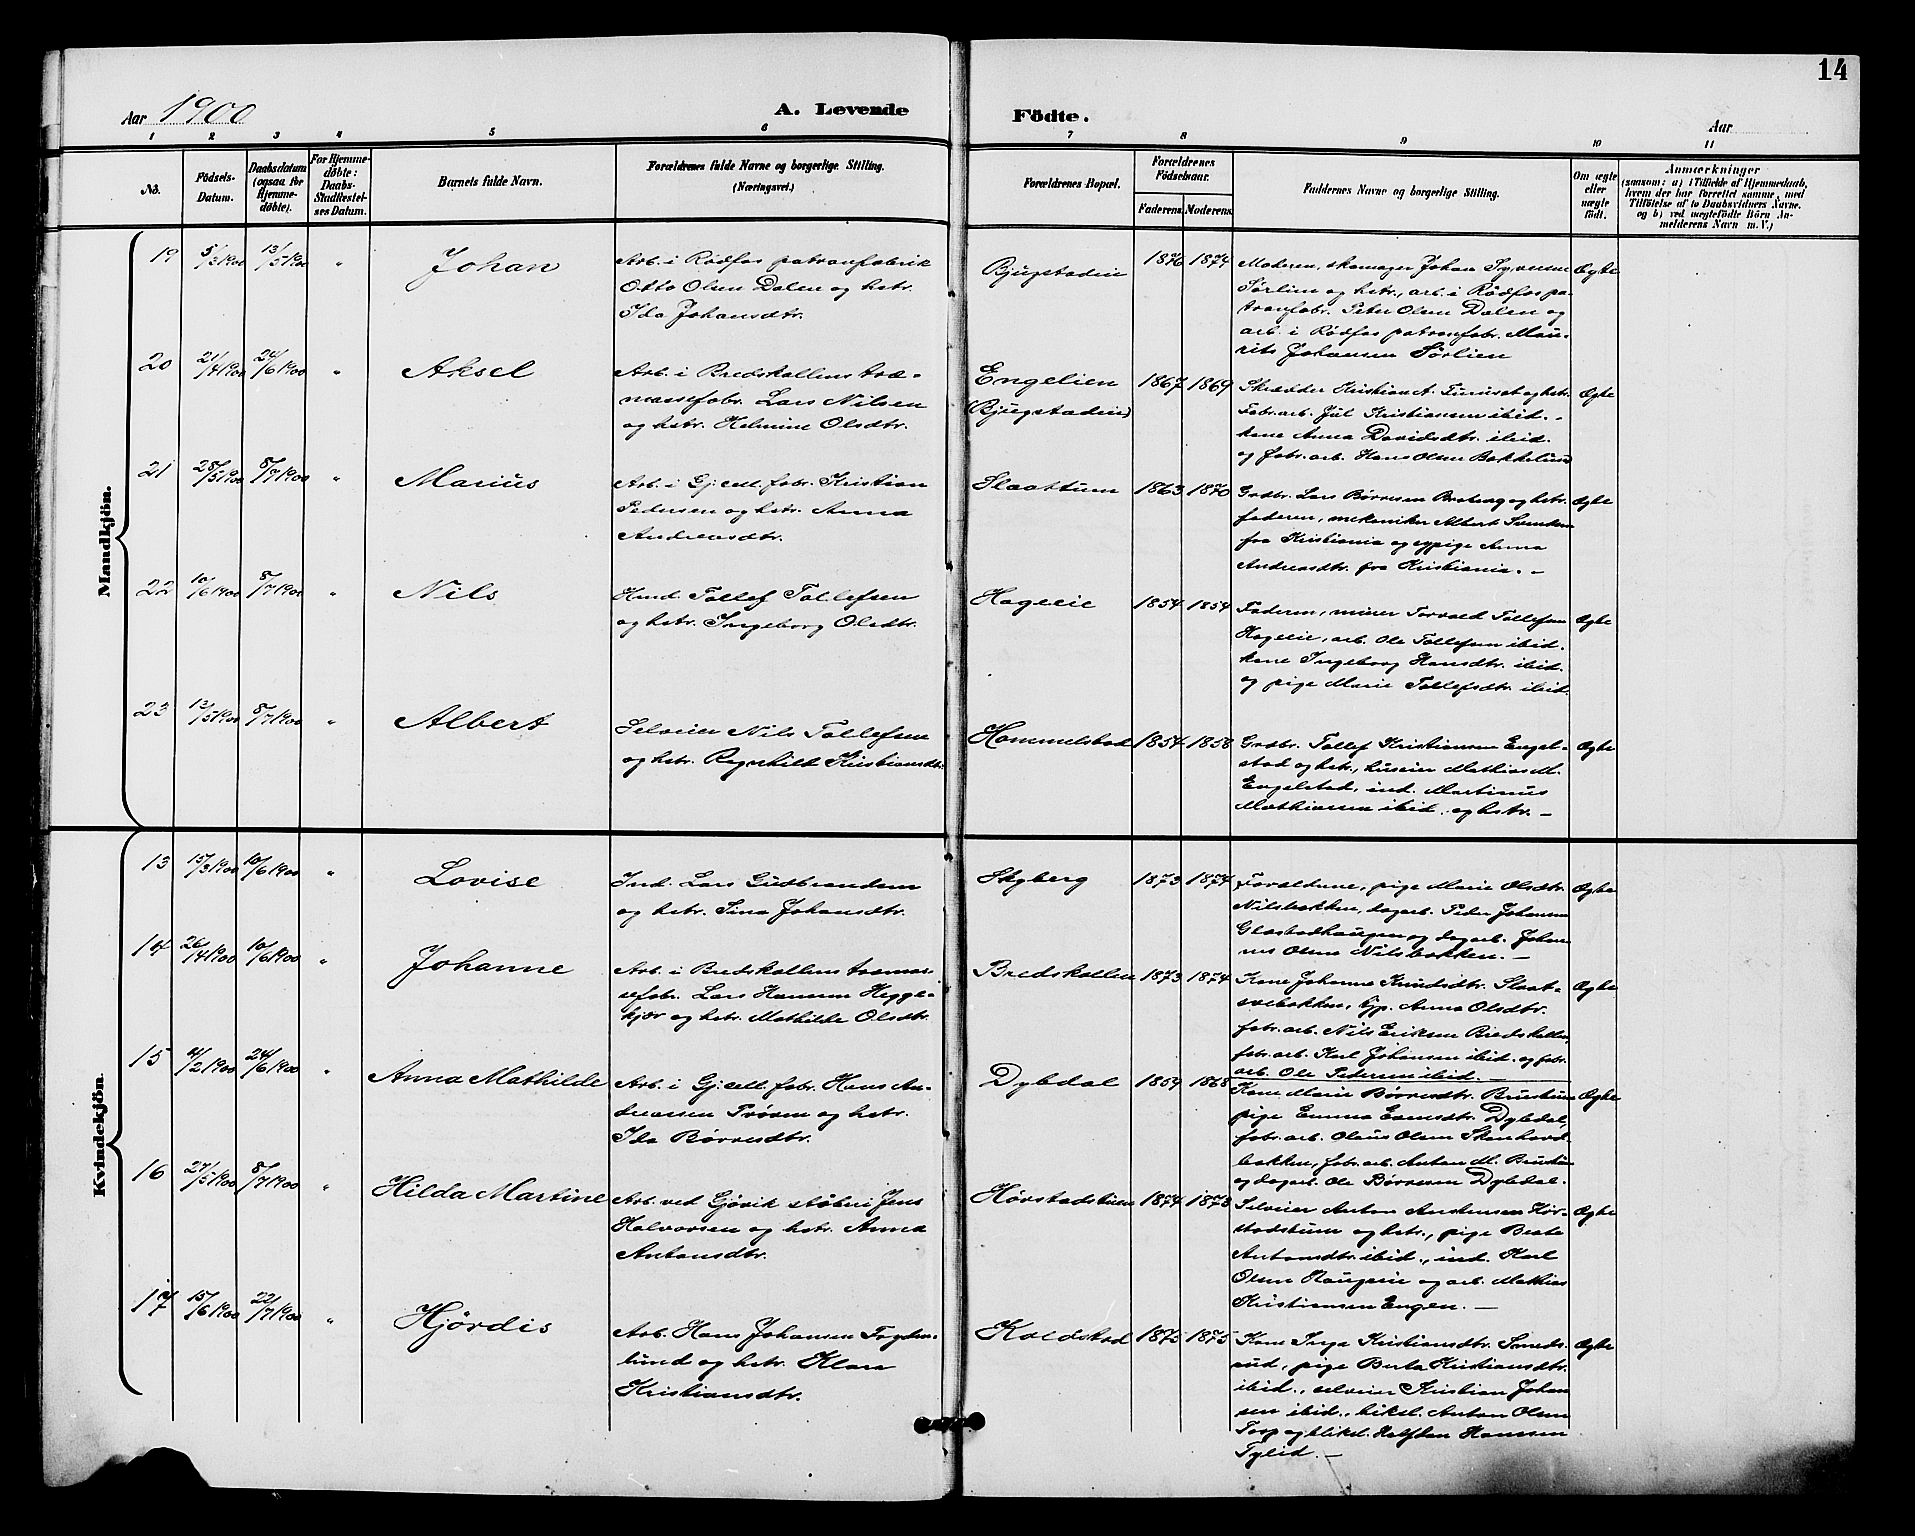 14
Aar 1900
A. Levende Födte.
Aar
1 2 3 4 5 6 7 8 9 10 11
No.
Födsels-
Datum.
Daabsdatum
(ogsaa for
Hjemme-
döbte).
For Hjemme-
döbte:
Daabs-
Stadfæstel-
ses Datum.
Barnets fulde Navn.
Forældrenes fulde Navne og borgerlige Stilling.
(Næringsvei.)
Forældrenes Bopæl.
Forældrenes
Födselsaar.
Faderens
Moderens
Faddernes Navne og borgerlige Stilling.
Om ægte
eller
uægte
födt.
Anmærkninger
(saasom: a) i Tilfælde af Hjemmedaab,
hvem der har forrettet samme, med
Tilföielse af to Daabsvidners Navne.
og b) ved uægtefödte Börn An-
melderens Navn m. V.)
Mandkjön.
19 5/3 1900 13/5 1900 " Johan
Arb. i Rødfos patronfabrik
Otto Olsen Dalen og hstr.
Ida Johansdtr.
Bjugstadeie 1876 1874
Moderen, skomager Johan Syversen
Sørlien og hstr., arb. i Rødfos pa-
tronfabr. Peter Olsen Dalen og
arb. i Rødfos patronfabr. Mau-
rits Johansen Sørlien
Ægte
20 21/4 1900 24/6 1900 " Aksel
Arb. i Bredskallens træ-
massefabr. Lars Nilsen
og hstr. Helmine Olsdtr.
Engelien
(Bjugstadeie)
1867 1869
Skrædder Kristian A. Furuset og hstr.
Fabr. arb. Jul Kristiansen ibid. -
kone Anna Davidsdtr. ibid.
og fabr. arb. Hans Olsen Bakkelund
Ægte
21 28/5 1900 8/7 1900 " Marius
Arb. i Gj. cell. fabr. Kristian
Pedersen og hstr. Anna
Andreasdtr.
Slaattum 1863 1870
Grdbr. Lars Børresen og hstr.
faderen, mekaniker Albert
fra Kristiania og pige Anna
Andreasdtr. fra Kristiania. -
Ægte
22 10/6 1900 8/7 1900 " Nils
Husd. Tollef Tollefsen
og hstr. Ingeborg Olsdtr.
Hageeie 1854 1854
Faderen, murer Torvald Tollefsen
Hageeie, arb. Ole Tollefsen ibid.
kone Ingeborg Hansdtr. ibid.
og pige Marie Tollefsdtr. ibid.
Ægte
23 13/5 1900 8/7 1900 " Albert
Selveier Nils Tollefsen
og hstr. Ragnhild Kristiansdtr.
Hammelstad 1854 1858
Grdbr. Tollef Kristiansen Engel-
stad og hstr., huseier Mathias M.
Engelstad, ind. Martinus
Mathiassen ibid. og hstr. -
Ægte
Kvindekjön.
13 15/3 1900 10/6 1900 " Lovise
Ind. Lars Gudbrandsen
og hstr. Sina Johansdtr.
Skyberg 1873 1874
Forældrene, pige Marie Olsdtr.
Nilsbakken, dagarb. Peder Johansen
Glæstadhaugen og dagarb. Johan-
nes Olsen Nilsbakken. -
Ægte
14 26/4 1900 10/6 1900 " Johanne
Arb. i Bredskallens træmas-
sefabr. Lars Hansen Hegge-
kjær og hstr. Mathilde Olsdtr.
Bredskallen 1873 1874
Kone Johanne Knudsdtr. Slaat-
svebakken, Anna Olsdtr.
fabr. arb. Nils Eriksen Bredskallen
fabr. arb. Karl Johansen ibid. og fabr.
arb. Ole Pedersen ibid. -
Ægte
15 4/2 1900 24/6 1900 " Anna Mathilde
Arb. i Gj. cell. fabr. Hans An-
dreassen Prøven og hstr.
Ida Børresdtr.
Dybdal 1859 1868
Kone Marie Børresdtr.
pige Emma Evensdtr. Dybdal,
fabr. arb. Olaus Olsen
bakken, fabr. arb. Anton M.
og dagarb. Ole Børresen Dybdal.
Ægte
16 27/5 1900 8/7 1900 " Hilda Martine
Arb. ved Gjøvik støberi Jens
Halvorsen og hstr. Anna
Antonsdtr.
Hørstadstuen 1874 1878
Selveier Anton Hør-
stadstuen og hstr., pige Beate
Antonsdtr. ibid., ind. Karl
Olsen Haugeeie og arb. Mathias
Kristiansen Engen. -
Ægte
17 15/6 1900 22/7 1900 " Hjørdis
Arb. Hans Johansen
lund og hstr. Klara
Kristiansdtr.
Koldstad 1875 1875
Kone Inga Kristiansdtr. Smeds-
rud, pige Berta Kristiansdtr.
ibid., selveier Kristian Johan-
sen ibid., Anton Olsen
Torp og Halfdan Hansen
-
Ægte